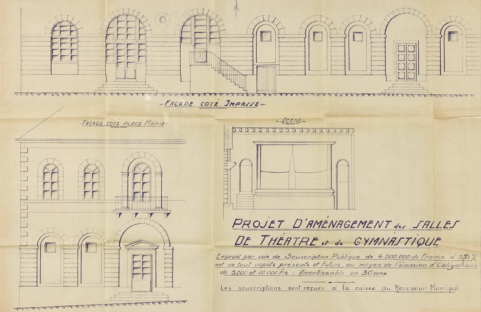 FACADE COTÉ IMPASSE
FACADE COTÉ PLACE MAIRIE
SCENE
PROJET D'AMÉNAGEMENT des SALLES
DE THÉATRE et de GYMNASTIQUE
Emprunt par voie de Souscription Publique de 4.000.000 de Francs à
net de tout impôts présents et futurs, au moyen de l'émission d'Obligations
de 5.000 et 10.000 frs - Amortissable en 30 ans
Les souscriptions sont reçues à la caisse du Receveur Municipal